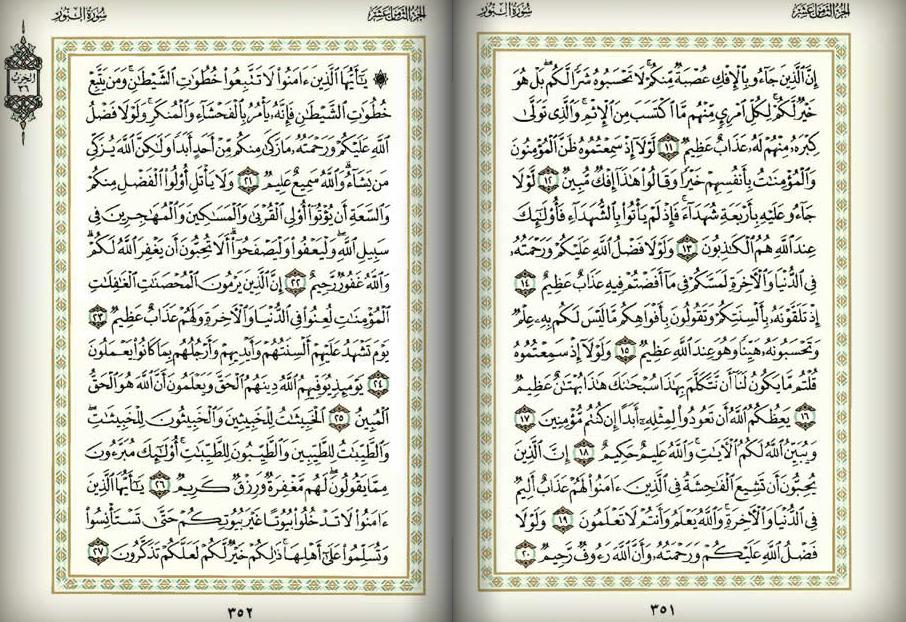 الجزء الثامن عشر سورة النور
إِنَّ الَّذِينَ جَاءُو بِالْإِفْكِ عُصْبَةٌ مِّنكُمْ لَا تَحْسَبُوهُ شَرًّا لَّكُم بَلْ هُوَ
خَيْرٌ لَّكُمْ لِكُلِّ امْرِئٍ مِّنْهُم مَّا اكْتَسَبَ مِنَ الْإِثْمِ وَالَّذِي تَوَلَّىٰ
كِبْرَهُ مِنْهُمْ لَهُ عَذَابٌ عَظِيمٌ ١١ لَّوْلَا إِذْ سَمِعْتُمُوهُ ظَنَّ الْمُؤْمِنُونَ
وَالْمُؤْمِنَٰتُ بِأَنفُسِهِمْ خَيْرًا وَقَالُوا هَٰذَا إِفْكٌ مُّبِينٌ ١٢ لَّوْلَا
جَاءُو عَلَيْهِ بِأَرْبَعَةِ شُهَدَاءَ فَإِذْ لَمْ يَأْتُوا بِالشُّهَدَاءِ فَأُولَٰئِكَ
عِندَ اللَّهِ هُمُ الْكَٰذِبُونَ ١٣ وَلَوْلَا فَضْلُ اللَّهِ عَلَيْكُمْ وَرَحْمَتُهُ
فِي الدُّنْيَا وَالْآخِرَةِ لَمَسَّكُمْ فِي مَا أَفَضْتُمْ فِيهِ عَذَابٌ عَظِيمٌ ١٤
إِذْ تَلَقَّوْنَهُ بِأَلْسِنَتِكُمْ وَتَقُولُونَ بِأَفْوَاهِكُم مَّا لَيْسَ لَكُم بِهِ عِلْمٌ
وَتَحْسَبُونَهُ هَيِّنًا وَهُوَ عِندَ اللَّهِ عَظِيمٌ ١٥ وَلَوْلَا إِذْ سَمِعْتُمُوهُ
قُلْتُم مَّا يَكُونُ لَنَا أَن نَّتَكَلَّمَ بِهَٰذَا سُبْحَٰنَكَ هَٰذَا بُهْتَٰنٌ عَظِيمٌ
١٦ يَعِظُكُمُ اللَّهُ أَن تَعُودُوا لِمِثْلِهِ أَبَدًا إِن كُنتُم مُّؤْمِنِينَ ١٧
وَيُبَيِّنُ اللَّهُ لَكُمُ الْآيَٰتِ وَاللَّهُ عَلِيمٌ حَكِيمٌ ١٨ إِنَّ الَّذِينَ
يُحِبُّونَ أَن تَشِيعَ الْفَٰحِشَةُ فِي الَّذِينَ ءَامَنُوا لَهُمْ عَذَابٌ أَلِيمٌ
فِي الدُّنْيَا وَالْآخِرَةِ وَاللَّهُ يَعْلَمُ وَأَنتُمْ لَا تَعْلَمُونَ ١٩ وَلَوْلَا
فَضْلُ اللَّهِ عَلَيْكُمْ وَرَحْمَتُهُ وَأَنَّ اللَّهَ رَءُوفٌ رَّحِيمٌ ٢٠
٣٥١
الجزء الثامن عشر سورة النور
الحزب ٣٦
۞ يَٰأَيُّهَا الَّذِينَ ءَامَنُوا لَا تَتَّبِعُوا خُطُوَٰتِ الشَّيْطَٰنِ وَمَن يَتَّبِعْ
خُطُوَٰتِ الشَّيْطَٰنِ فَإِنَّهُ يَأْمُرُ بِالْفَحْشَاءِ وَالْمُنكَرِ وَلَوْلَا فَضْلُ
اللَّهِ عَلَيْكُمْ وَرَحْمَتُهُ مَا زَكَىٰ مِنكُم مِّنْ أَحَدٍ أَبَدًا وَلَٰكِنَّ اللَّهَ يُزَكِّي
مَن يَشَاءُ وَاللَّهُ سَمِيعٌ عَلِيمٌ ٢١ وَلَا يَأْتَلِ أُولُوا الْفَضْلِ مِنكُمْ
وَالسَّعَةِ أَن يُؤْتُوا أُولِي الْقُرْبَىٰ وَالْمَسَٰكِينَ وَالْمُهَٰجِرِينَ فِي
سَبِيلِ اللَّهِ وَلْيَعْفُوا وَلْيَصْفَحُوا أَلَا تُحِبُّونَ أَن يَغْفِرَ اللَّهُ لَكُمْ
وَاللَّهُ غَفُورٌ رَّحِيمٌ ٢٢ إِنَّ الَّذِينَ يَرْمُونَ الْمُحْصَنَٰتِ الْغَٰفِلَٰتِ
الْمُؤْمِنَٰتِ لُعِنُوا فِي الدُّنْيَا وَالْآخِرَةِ وَلَهُمْ عَذَابٌ عَظِيمٌ ٢٣
يَوْمَ تَشْهَدُ عَلَيْهِمْ أَلْسِنَتُهُمْ وَأَيْدِيهِمْ وَأَرْجُلُهُم بِمَا كَانُوا يَعْمَلُونَ
٢٤ يَوْمَئِذٍ يُوَفِّيهِمُ اللَّهُ دِينَهُمُ الْحَقَّ وَيَعْلَمُونَ أَنَّ اللَّهَ هُوَ الْحَقُّ
الْمُبِينُ ٢٥ الْخَبِيثَٰتُ لِلْخَبِيثِينَ وَالْخَبِيثُونَ لِلْخَبِيثَٰتِ
وَالطَّيِّبَٰتُ لِلطَّيِّبِينَ وَالطَّيِّبُونَ لِلطَّيِّبَٰتِ أُولَٰئِكَ مُبَرَّءُونَ
مِمَّا يَقُولُونَ لَهُم مَّغْفِرَةٌ وَرِزْقٌ كَرِيمٌ ٢٦ يَٰأَيُّهَا الَّذِينَ
ءَامَنُوا لَا تَدْخُلُوا بُيُوتًا غَيْرَ بُيُوتِكُمْ حَتَّىٰ تَسْتَأْنِسُوا
وَتُسَلِّمُوا عَلَىٰ أَهْلِهَا ذَٰلِكُمْ خَيْرٌ لَّكُمْ لَعَلَّكُمْ تَذَكَّرُونَ ٢٧
٣٥٢